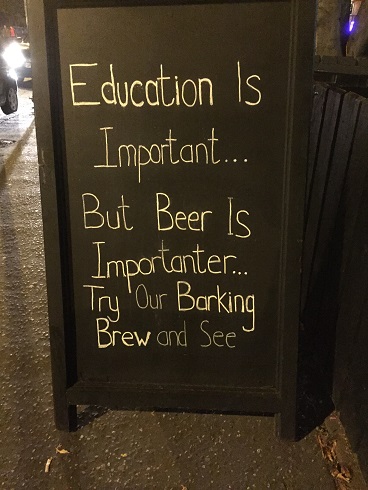 Education Is
Important...
But Beer Is
Importanter...
Try Our Barking
Brew and See